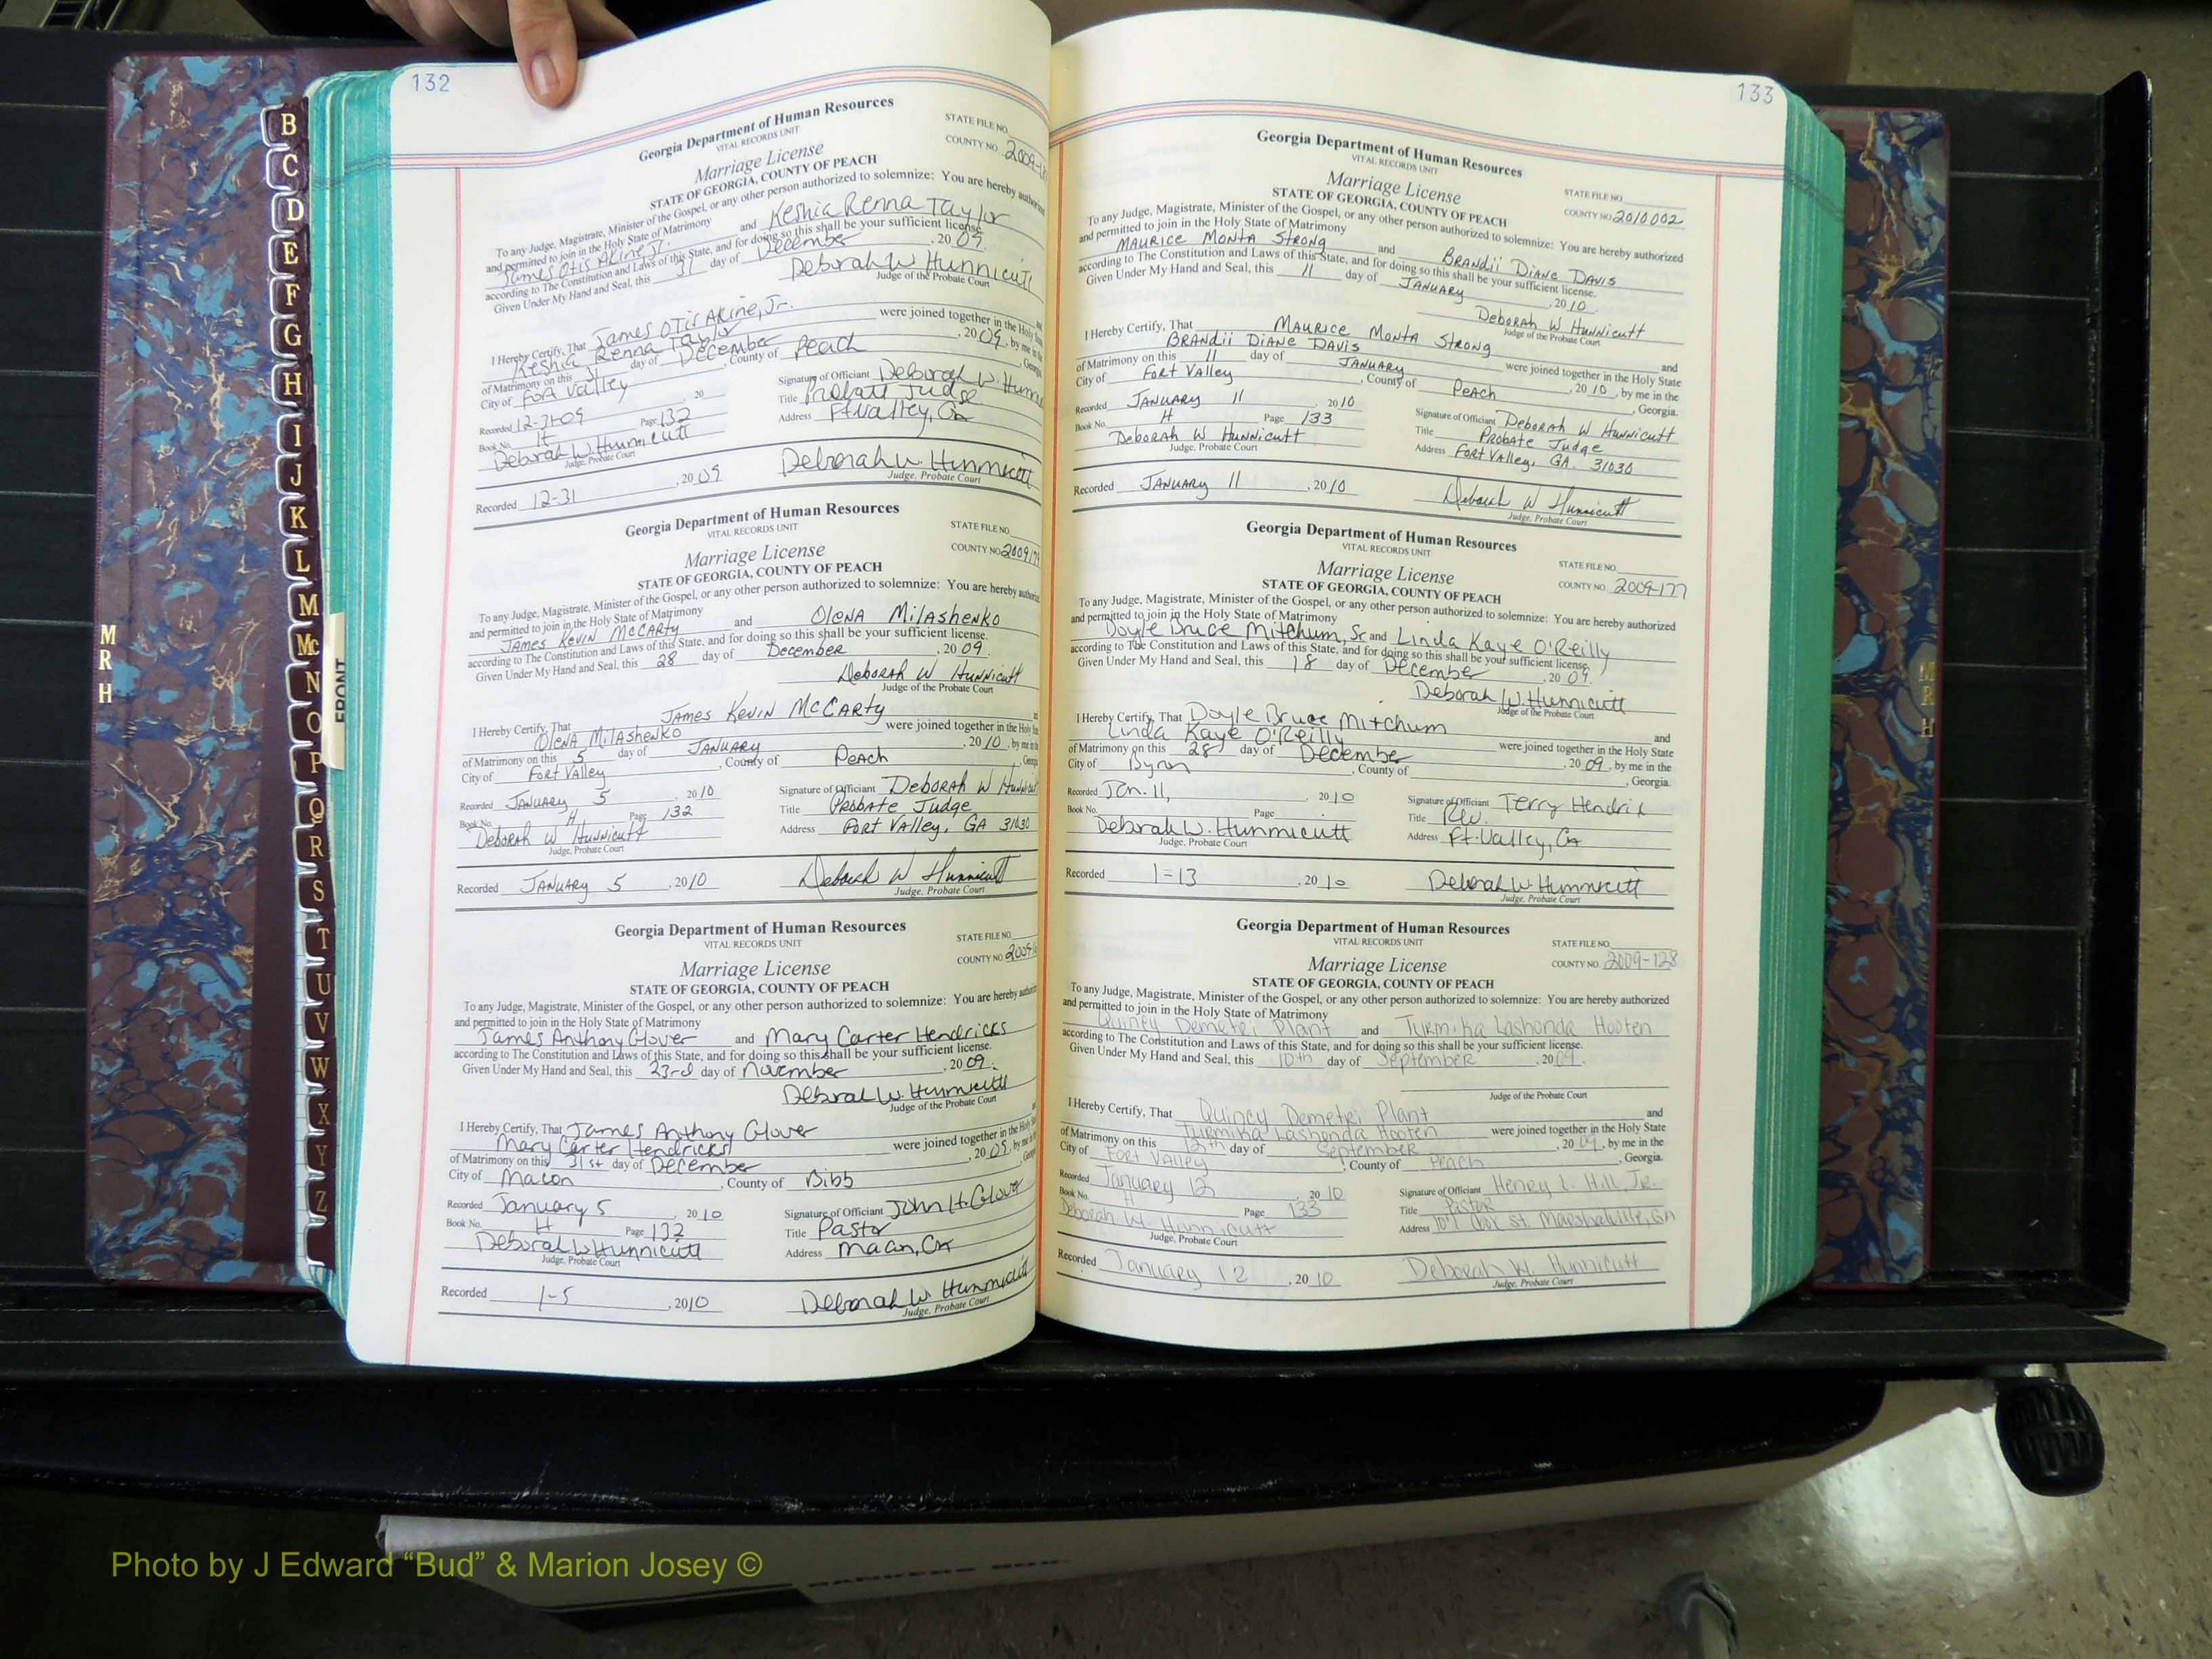 132
Georgia Department of Human Resources
VITAL RECORDS UNIT
STATE FILE NO.
Marriage License
COUNTY NO. 2009-
STATE OF GEORGIA, COUNTY OF PEACH
To any Judge, Magistrate, Minister of the Gospel, or any other person authorized to solemnize: You are hereby authorized
and permitted to join in the Holy State of Matrimony
James Otis Akine, Jr. and Keshia Renna Taylor
according to The Constitution and Laws of this State, and for doing so this shall be your sufficient license.
Given Under My Hand and Seal, this 31 day of December, 2009.
Deborah W Hunnicutt
Judge of the Probate Court
I Hereby Certify, That James Otis Akine, Jr. and
Keshia Renna Taylor were joined together in the Holy
of Matrimony on this 31 day of December, 2009, by me in the
City of Fort Valley, County of Peach, Georgia
Recorded 12-31-09 20
Signature of Officiant Deborah W. Hunn
Book No. H Page 132
Title Probate Judge
Deborah W. Hunnicutt
Judge, Probate Court
Address Ft Valley, Ga
Recorded 12-31, 2009
Deborah W. Hunnicutt
Judge, Probate Court
Georgia Department of Human Resources
VITAL RECORDS UNIT
STATE FILE NO.
Marriage License
COUNTY NO. 2009179
STATE OF GEORGIA, COUNTY OF PEACH
To any Judge, Magistrate, Minister of the Gospel, or any other person authorized to solemnize: You are hereby authorized
and permitted to join in the Holy State of Matrimony
James Kevin McCarty and Olena Milashenko
according to The Constitution and Laws of this State, and for doing so this shall be your sufficient license.
Given Under My Hand and Seal, this 28 day of December, 2009.
Deborah W Hunnicutt
Judge of the Probate Court
I Hereby Certify, That James Kevin McCarty and
Olena Milashenko were joined together in the Holy
of Matrimony on this 5 day of January, 2010, by me in
City of Fort Valley, County of Peach, Georgia
Recorded January 5, 2010
Signature of Officiant Deborah W Hunnicutt
Book No. H Page 132
Title Probate Judge
Deborah W Hunnicutt
Judge, Probate Court
Address Fort Valley, GA 31030
Recorded January 5, 2010
Deborah W Hunnicutt
Judge, Probate Court
Georgia Department of Human Resources
VITAL RECORDS UNIT
STATE FILE NO.
Marriage License
COUNTY NO. 2009
STATE OF GEORGIA, COUNTY OF PEACH
To any Judge, Magistrate, Minister of the Gospel, or any other person authorized to solemnize: You are hereby authorized
and permitted to join in the Holy State of Matrimony
James Anthony Glover and Mary Carter Hendricks
according to The Constitution and Laws of this State, and for doing so this shall be your sufficient license.
Given Under My Hand and Seal, this 23rd day of November, 2009.
Deborah W. Hunnicutt
Judge of the Probate Court
I Hereby Certify, That James Anthony Glover
Mary Carter Hendricks were joined together in the Holy
of Matrimony on this 31st day of December, 2009, by me in
City of Macon, County of Bibb
Recorded January 5, 2010
Signature of Officiant John H. Glover
Book No. H Page 132
Title Pastor
Deborah W Hunnicutt
Judge, Probate Court
Address Macon, Ga
Recorded 1-5, 2010
Deborah W. Hunnicutt
Judge, Probate Court
133
Georgia Department of Human Resources
VITAL RECORDS UNIT
STATE FILE NO.
Marriage License
COUNTY NO. 2010002
STATE OF GEORGIA, COUNTY OF PEACH
To any Judge, Magistrate, Minister of the Gospel, or any other person authorized to solemnize: You are hereby authorized
and permitted to join in the Holy State of Matrimony
Maurice Monta Strong and Brandii Diane Davis
according to The Constitution and Laws of this State, and for doing so this shall be your sufficient license.
Given Under My Hand and Seal, this 11 day of January, 2010.
Deborah W Hunnicutt
Judge of the Probate Court
I Hereby Certify, That Maurice Monta Strong and
Brandii Diane Davis were joined together in the Holy State
of Matrimony on this 11 day of January, 2010, by me in the
City of Fort Valley, County of Peach, Georgia.
Recorded January 11 2010
Signature of Officiant Deborah W Hunnicutt
Book No. H Page 133
Title Probate Judge
Deborah W Hunnicutt
Judge, Probate Court
Address Fort Valley, GA. 31030
Recorded January 11, 2010
Deborah W Hunnicutt
Judge, Probate Court
Georgia Department of Human Resources
VITAL RECORDS UNIT
STATE FILE NO.
Marriage License
COUNTY NO. 2009-177
STATE OF GEORGIA, COUNTY OF PEACH
To any Judge, Magistrate, Minister of the Gospel, or any other person authorized to solemnize: You are hereby authorized
and permitted to join in the Holy State of Matrimony
Doyle Bruce Mitchum, Sr and Linda Kaye O'Reilly
according to The Constitution and Laws of this State, and for doing so this shall be your sufficient license.
Given Under My Hand and Seal, this 18 day of December, 2009.
Deborah W. Hunnicutt
Judge of the Probate Court
I Hereby Certify, That Doyle Bruce Mitchum and
Linda Kaye O'Reilly were joined together in the Holy State
of Matrimony on this 28 day of December, 2009, by me in the
City of Byron, County of, Georgia.
Recorded Jan. 11, 2010
Signature of Officiant Terry Hendrix
Book No. Page
Title Rev.
Deborah W. Hunnicutt
Judge, Probate Court
Address Ft. Valley, Ga
Recorded 1-13, 2010
Deborah W. Hunnicutt
Judge, Probate Court
Georgia Department of Human Resources
VITAL RECORDS UNIT
STATE FILE NO.
Marriage License
COUNTY NO. 2009-128
STATE OF GEORGIA, COUNTY OF PEACH
To any Judge, Magistrate, Minister of the Gospel, or any other person authorized to solemnize: You are hereby authorized
and permitted to join in the Holy State of Matrimony
Quincy Demetri Plant and Turmika Lashonda Hooten
according to The Constitution and Laws of this State, and for doing so this shall be your sufficient license.
Given Under My Hand and Seal, this 10th day of September, 2009.
Judge of the Probate Court
I Hereby Certify, That Quincy Demetri Plant and
Turmika Lashonda Hooten were joined together in the Holy State
of Matrimony on this 12th day of September, 2009, by me in the
City of Fort Valley, County of Peach, Georgia.
Recorded January 12, 2010
Signature of Officiant Henry L. Hill, Jr.
Book No. H Page 133
Title Pastor
Deborah W. Hunnicutt
Judge, Probate Court
Address St. Marshallville, GA
Recorded January 12, 2010
Deborah W. Hunnicutt
Judge, Probate Court
B
C
D
E
F
G
H
I
J
K
L
M
Mc
N
O
P
Q
R
S
T
U
V
W
X
Y
Z
FRONT
M
R
H
M
R
H
Photo by J Edward “Bud” & Marion Josey ©